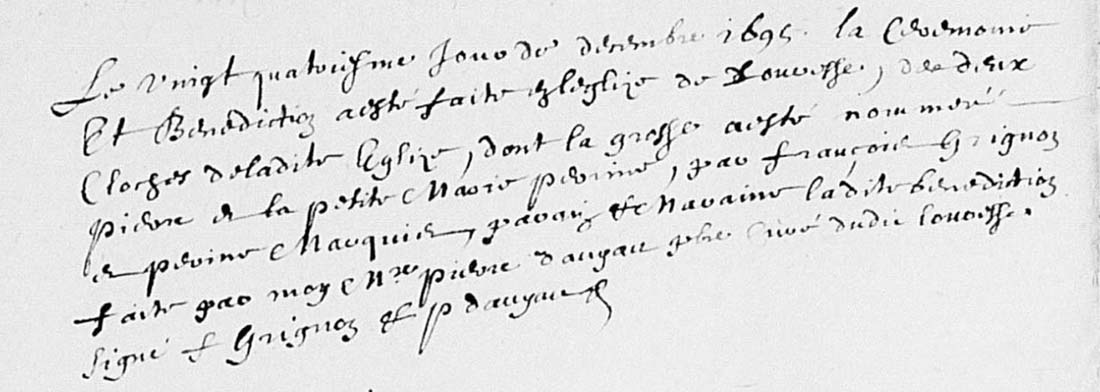 Le vingt quatoiesme Jour de decembre 1695. la Ceremonie
Et Benediction a esté faite en leglize de Louvesse, des deux
Cloches de ladite Eglize, dont la grosse a esté nommeé
pierre et la petite Marie perinne, par François Grignon
et perine Marquier, parain & Maraine ladite benediction
faite par moy Mre pierre dauyau pbre Curé dudit louvesse.
Signé f Grignon & p dauyau